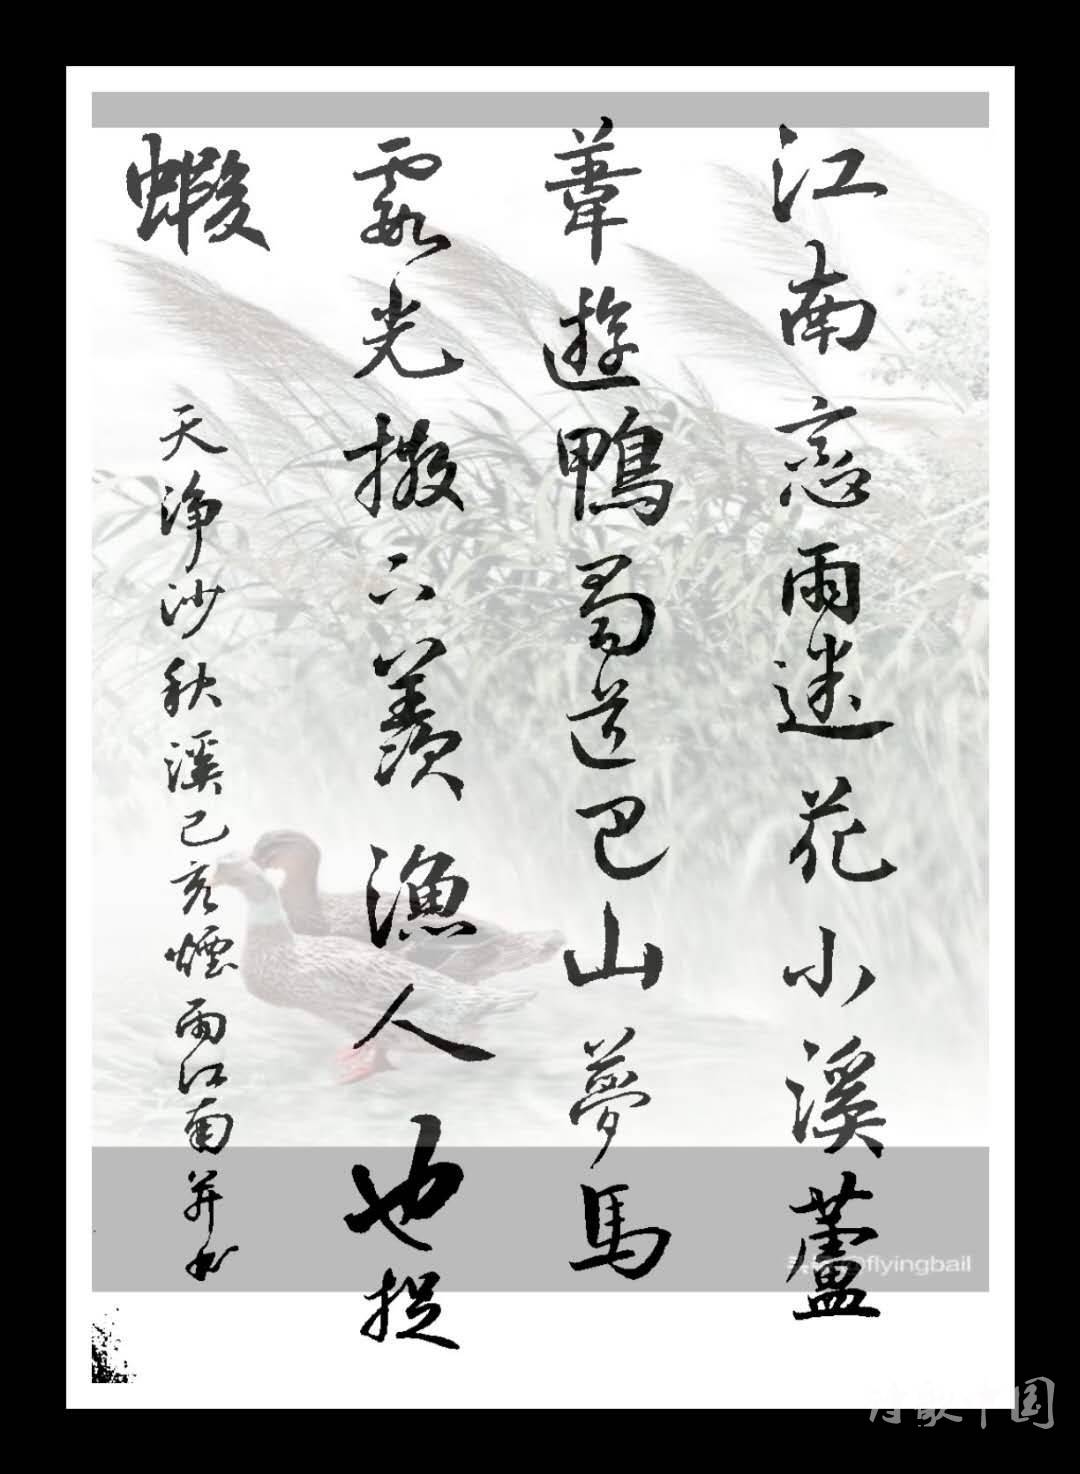 江南窓雨迷花小溪蘆
葦遊鴨蜀道巴山夢馬
霞光撥六羨漁人也捉
蝦
天淨沙秋溪己亥煙雨江南并书
@flyingbail
诗歌中国